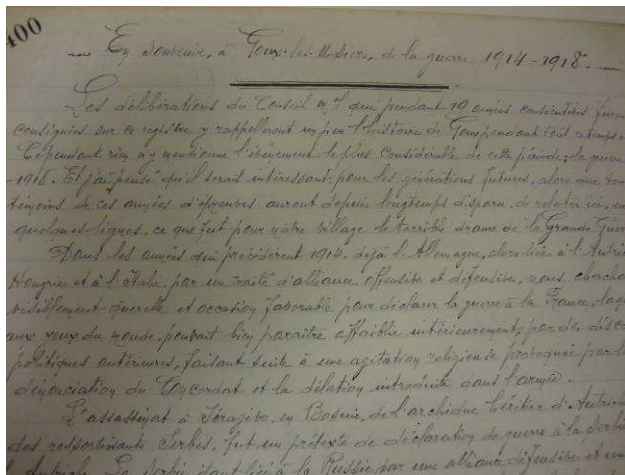 400
En souvenir, à Goux-les-Usiers, de la guerre 1914-1918.
Les délibérations du Conseil M.al qui pendant 19 années consécutives furent
consignées sur ce registre y rappelleront un peu l'histoire de Goux pendant tout ce temps.
Cependant rien n'y mentionne l'évènement le plus considérable de cette période: la guerre
-1918. Et j'ai pensé qu'il serait intéressant pour les générations futures, alors que
témoins de ces années d'épreuves auront depuis longtemps disparu, de relater ici, en
quelques lignes, ce que fut pour notre village le terrible drame de la Grande Guerre
Dans les années qui précédèrent 1914, déjà l'Allemagne, alors liée à l'Autriche
Hongrie et à l'Italie par un traité d'alliance offensive et défensive, nous cherchait
visiblement querelle et occasion favorable pour déclarer la guerre à la France,
aux yeux du monde, pouvait bien paraître affaiblie intérieurement par des
politiques antérieures, faisant suite à une agitation religieuse provoquée par la
dénonciation du Concordat et la délation introduite dans l'armée.
L'assassinat à Sérajévo, en Bosnie, de l'archiduc héritier d'Autriche
des ressortissants Serbes, fut un prétexte de déclaration de guerre à la Serbie
la Serbie étant liée à la Russie par une alliance défensive et